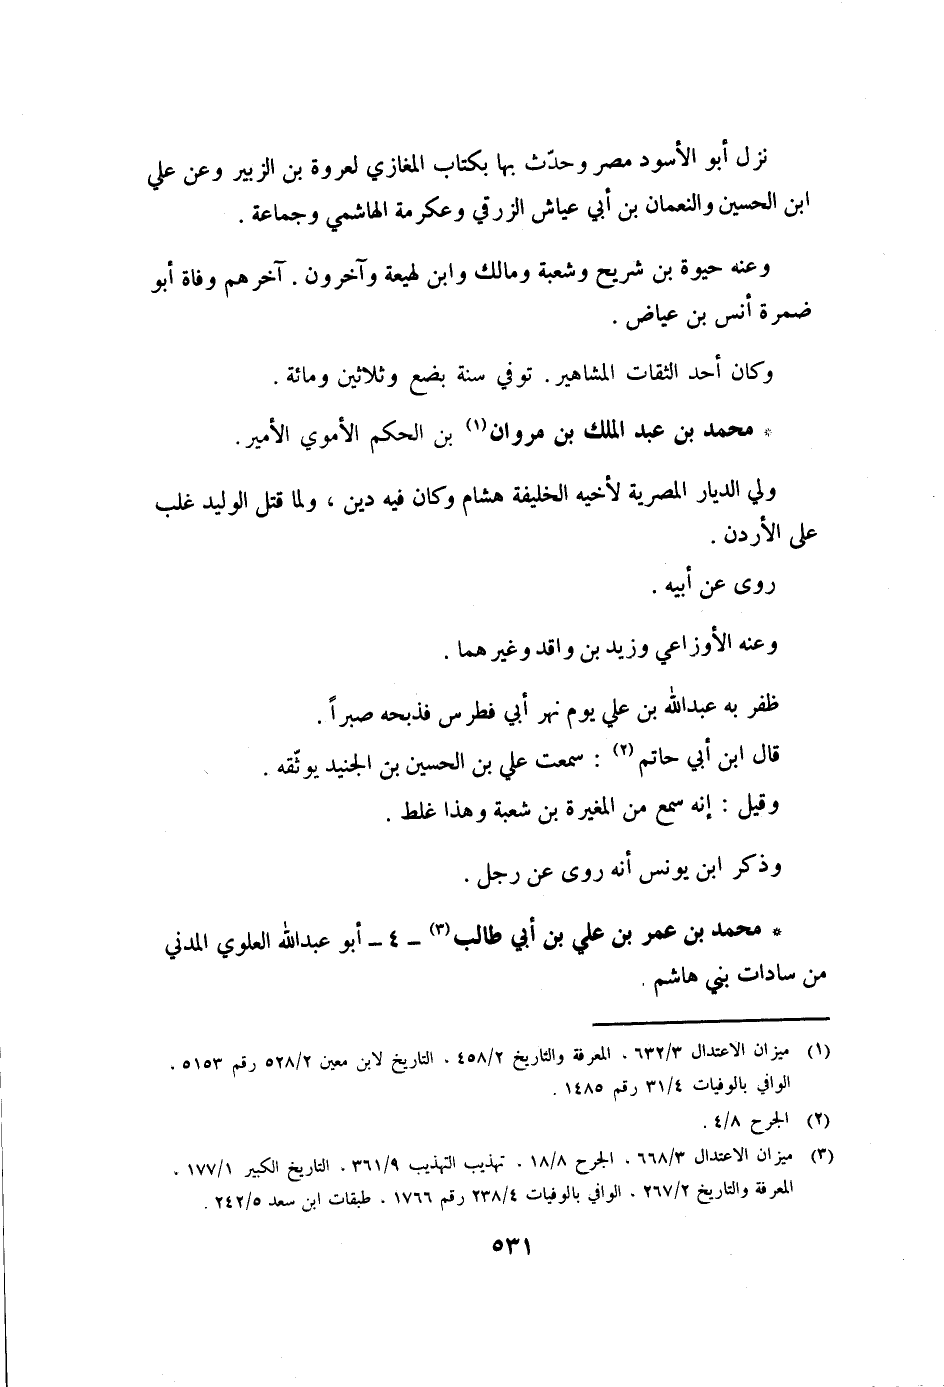 نزل أبو الأسود مصر وحدّث بها بكتاب المغازي لعروة بن الزبير وعن علي
ابن الحسين والنعمان بن أبي عياش الزرقي وعكرمة الهاشمي وجماعة .
وعنه حيوة بن شريح وشعبة ومالك وابن لهيعة وآخرون . آخرهم وفاة أبو
ضمرة أنس بن عياض .
وكان أحد الثقات المشاهير . توفي سنة بضع وثلاثين ومائة .
* محمد بن عبد الملك بن مروان(١) بن الحكم الأموي الأمير .
ولي الديار المصرية لأخيه الخليفة هشام وكان فيه دين ، ولما قتل الوليد غلب
على الأردن .
روى عن أبيه .
وعنه الأوزاعي وزيد بن واقد وغيرهما .
ظفر به عبدالله بن علي يوم نهر أبي فطرس فذبحه صبراً .
قال ابن أبي حاتم(٢) : سمعت علي بن الحسين بن الجنيد يوثّقه .
وقيل : إنه سمع من المغيرة بن شعبة وهذا غلط .
وذكر ابن يونس أنه روى عن رجل .
* محمد بن عمر بن علي بن أبي طالب(٣) ــ ٤ ــ أبو عبدالله العلوي المدني
من سادات بني هاشم .
(١) ميزان الاعتدال ٦٣٢/٣ . المعرفة والتاريخ ٤٥٨/٢ . التاريخ لابن معين ٥٢٨/٢ رقم ٥١٥٣ .
الوافي بالوفيات ٣١/٤ رقم ١٤٨٥ .
(٢) الجرح ٤/٨ .
(٣) ميزان الاعتدال ٦٦٨/٣ . الجرح ١٨/٨ . تهذيب التهذيب ٣٦١/٩ . التاريخ الكبير ١٧٧/١ .
المعرفة والتاريخ ٢٦٧/٢ . الوافي بالوفيات ٢٣٨/٤ رقم ١٧٦٦ . طبقات ابن سعد ٢٤٢/٥ .
٥٣١